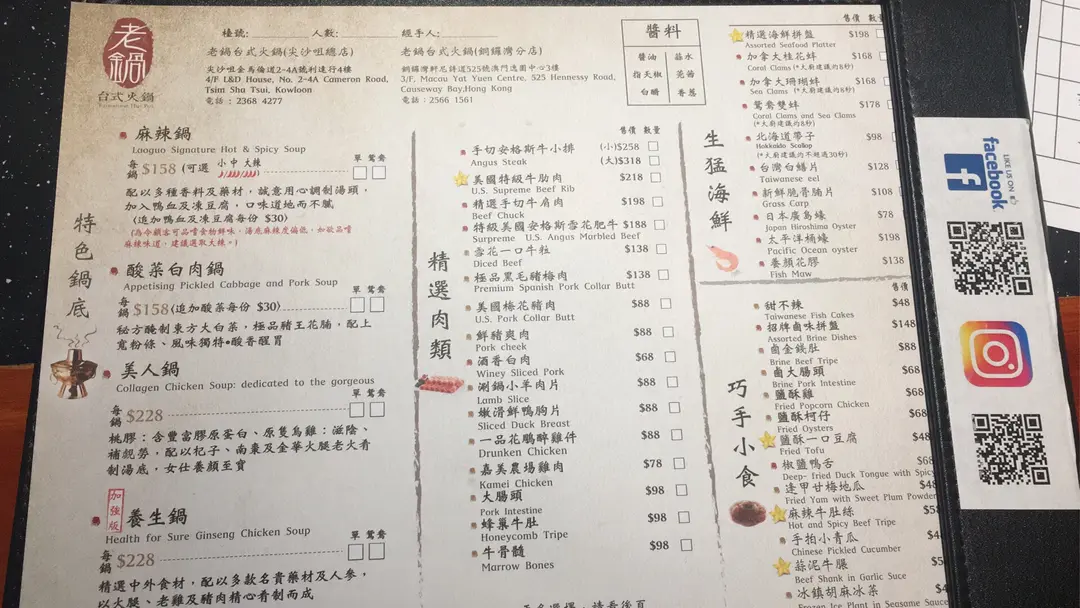 老鍋
台式火鍋
檯號: 人數: 經手人:
老鍋台式火鍋(尖沙咀總店)
尖沙咀金馬倫道2-4A號利達行4樓
4/F L&D House, No. 2-4A Cameron Road,
Tsim Sha Tsui, Kowloon
電話 : 2368 4277
老鍋台式火鍋(銅鑼灣分店)
銅鑼灣軒尼詩道525號澳門逸園中心3樓
3/F, Macau Yat Yuen Centre, 525 Hennessy Road,
Causeway Bay,Hong Kong
電話 : 2566 1561
醬料
醬油 蒜水
指天椒 芫茜
白醋 香蔥
特色鍋底
麻辣鍋
Laoguo Signature Hot & Spicy Soup
每鍋 $158 (可選 小 中 大辣) 單 鴛鴦
配以多種香料及藥材，誠意用心調制湯頭，
加入鴨血及凍豆腐，口味道地而不膩
(追加鴨血及凍豆腐每份 $30)
(為令顧客可品嚐食物鮮味，湯底麻辣度偏低，如欲品嚐
麻辣味道，建議選取大辣。)
酸菜白肉鍋
Appetising Pickled Cabbage and Pork Soup
每鍋 $158(追加酸菜每份 $30) 單 鴛鴦
秘方醃制東方大白菜，極品豬王花腩，配上
寬粉條、風味獨特•酸香醒胃
美人鍋
Collagen Chicken Soup: dedicated to the gorgeous
每鍋 $228 單 鴛鴦
桃膠：含豐富膠原蛋白、原隻烏雞：滋陰、
補虢勞，配以杞子、南棗及金華火腿老火肴
制湯底，女仕養顏至寶
加強版
養生鍋
Health for Sure Ginseng Chicken Soup
每鍋 $228 單 鴛鴦
精選中外食材，配以多款名貴藥材及人參，
以大腿、老雞及豬肉精心肴制而成
精選肉類
售價 數量
手切安格斯牛小排 (小)$258
Angus Steak (大)$318
美國特級牛肋肉 $218
U.S. Supreme Beef Rib
精選手切牛肩肉 $198
Beef Chuck
特級美國安格斯雪花肥牛 $188
Surpreme U.S. Angus Marbled Beef
雪花一口牛粒 $138
Diced Beef
極品黑毛豬梅肉 $138
Premium Spanish Pork Collar Butt
美國梅花豬肉 $88
U.S. Pork Collar Butt
鮮豬爽肉 $88
Pork cheek
酒香白肉 $68
Winey Sliced Pork
涮鍋小羊肉片 $88
Lamb Slice
嫩滑鮮鴨胸片 $88
Sliced Duck Breast
一品花鵰醉雞件 $88
Drunken Chicken
嘉美農場雞肉 $78
Kamei Chicken
大腸頭 $98
Pork Intestine
蜂巢牛肚 $98
Honeycomb Tripe
牛骨髓 $98
Marrow Bones
生猛海鮮
售價 數量
精選海鮮拼盤 $198
Assorted Seafood Platter
加拿大桂花蚌 $168
Coral Clams (*大廚建議灼8秒)
加拿大珊瑚蚌 $168
Sea Clams (*大廚建議灼8秒)
鴛鴦雙蚌 $178
Coral Clams and Sea Clams
(*大廚建議灼8秒)
北海道帶子 $98
Hokkaido Scallop
(*大廚建議灼不超過30秒)
台灣白鱔片 $128
Taiwanese eel
新鮮脆骨腩片 $108
Grass Carp
日本廣島蠔 $78
Japan Hiroshima Oyster
太平洋桶蠔 $198
Pacific Ocean oyster
養顏花膠 $138
Fish Maw
巧手小食
售價
甜不辣 $48
Taiwanese Fish Cakes
招牌鹵味拼盤 $148
Assorted Brine Dishes
鹵金錢肚 $88
Brine Beef Tripe
鹵大腸頭 $68
Brine Pork Intestine
鹽酥雞 $68
Fried Popcorn Chicken
鹽酥柯仔 $68
Fried Oysters
鹽酥一口豆腐 $48
Fried Tofu
椒鹽鴨舌 $68
Deep- fried Duck Tongue with Spicy
逢甲甘梅地瓜 $48
Fried Yam with Sweet Plum Powder
麻辣牛肚絲 $5
Hot and Spicy Beef Tripe
手拍小青瓜 $4
Chinese Pickled Cucumber
蒜泥牛𦟌 $5
Beef Shank in Garlic Suce
冰鎮胡麻冰菜 $4
Frozen Ice Plant in Seasame Sauce
LIKE US ON
facebook